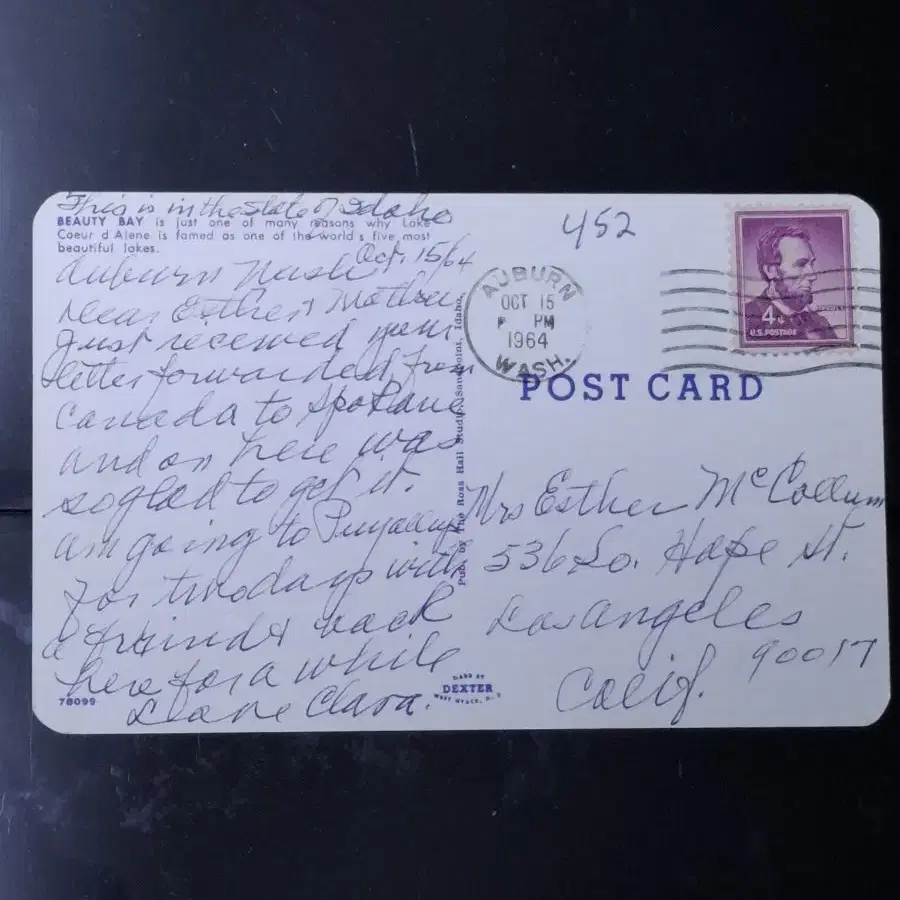 This is in the State of Idaho
BEAUTY BAY is just one of many reasons why Lake
Coeur d Alene is famed as one of the world s five most
beautiful lakes.
Oct. 15/64
Auburn Wash
Dear Esther & Mother
Just received your
letter forwarded from
Canada to Spokane
and on here was
so glad to get it.
am going to Puyallup
for two days with
a friend & back
here for a while
Love Clara.
78099
Pub. by The Ross Hall Studio, Sandpoint, Idaho.
MADE BY
DEXTER
WEST NYACK, N. Y.
452
AUBURN
OCT 15
PM
1964
WASH.
4¢
U.S. POSTAGE
POST CARD
Mrs Esther McCollum
536 So. Hope St.
Los Angeles
90017
Calif.